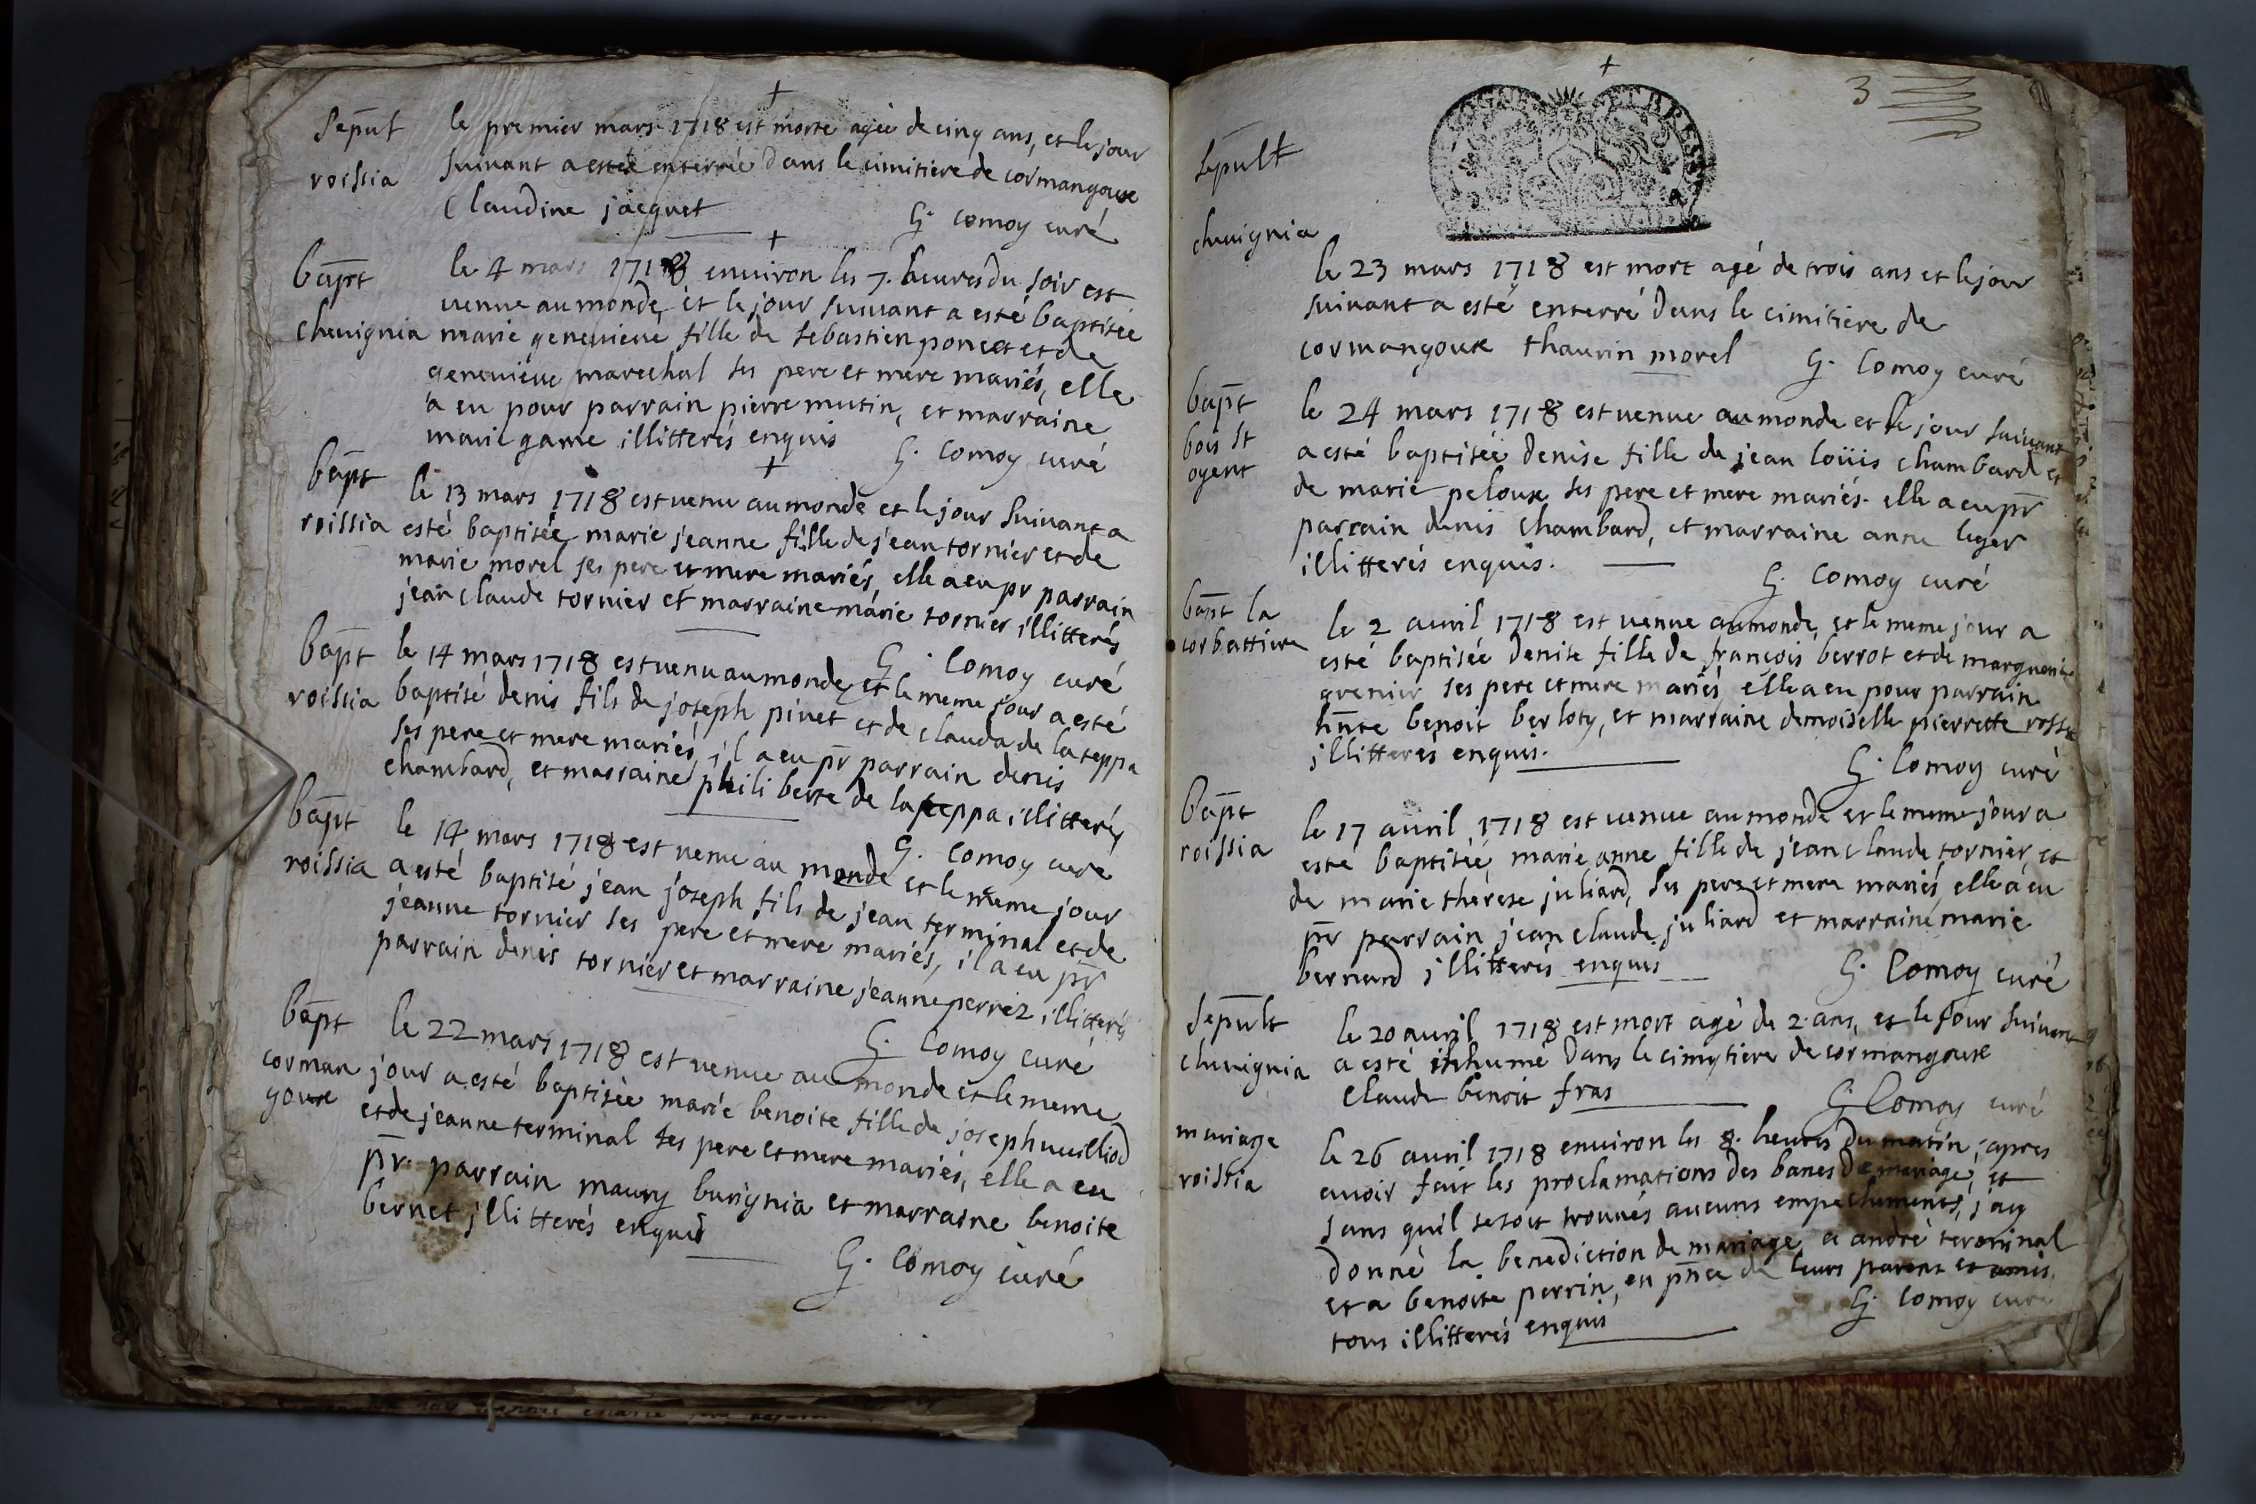 sepult
roissia
le premier mars 1718 est morte agée de cinq ans, et le jour
suivant a esté enterrée dans le cimitiere de cormangoux
Claudine jacquet
G. Comoy curé
bapt
chevignia
le 4 mars 1718 environ les 7. heures du soir est
venue au monde, et le jour suivant a esté baptisée
marie genevieve fille de sebastien poncet et de
genevieve marechal ses pere et mere mariés, elle
a eu pour parrain pierre mutin, et marraine
marie game illitterés enquis
G. Comoy curé
bapt
roissia
le 13 mars 1718 est venue au monde et le jour suivant a
esté baptisée marie jeanne fille de jean tornier et de
marie morel ses pere et mere mariés, elle a eu pr parrain
jean claude tornier et marraine marie tornier illitterés
G. Comoy curé
bapt
roissia
le 14 mars 1718 est venu au monde, et le meme jour a esté
baptisé denis fils de joseph pivet et de clauda de lateppa
ses pere et mere mariés, il a eu pr parrain denis
chambard, et marraine philiberte de lateppa illitterés
G. Comoy curé
bapt
roissia
le 14 mars 1718 est venu au monde et le meme jour
a esté baptisé jean joseph fils de jean terminal et de
jeanne tornier ses pere et mere mariés, il a eu pr
parrain denis tornier et marraine jeanne perrez illitterés
G. Comoy curé
bapt
corman
goux
le 22 mars 1718 est venue au monde et le meme
jour a esté baptisée marie benoite fille de joseph vuilliod
et de jeanne terminal ses pere et mere mariés, elle a eu
pr parrain maury burignia et marraine benoite
bernet jllitterés enquis
G. Comoy curé
3
sepult
chevignia
le 23 mars 1718 est mort agé de trois ans et le jour
suivant a esté enterré dans le cimitiere de
cormangoux thaurin morel
G. Comoy curé
bapt
bois st
ogent
le 24 mars 1718 est venue au monde et le jour suivant
a esté baptisée denise fille de jean loüis chambard et
de marie peloux ses pere et mere mariés. elle a eu pr
parrain denis chambard, et marraine anne leger
illitterés enquis.
G. Comoy curé
bapt la
corbattiere
le 2 auril 1718 est venue au monde, et le meme jour a
esté baptisée denise fille de françois berrot et de marguerite
grenier ses pere et mere mariés, elle a eu pour parrain
hnte benoit berloty, et marraine demoiselle pierrette
jllitterés enquis.
G. Comoy curé
bapt
roissia
le 17 auril 1718 est venue au monde et le meme jour a
esté baptisée, marie anne fille de jean claude tornier, et
de marie therese juliard, ses pere et mere mariés, elle a eu
pr parrain jean claude juliard et marraine marie
bernard jllitterés enquis
G. Comoy curé
sepult
chevignia
le 20 auril 1718 est mort agé de 2. ans, et le jour suivant
a esté inhumé dans le cimytiere de cormangoux
Claude benoit fras
G. Comoy curé
mariage
roissia
le 26 auril 1718 environ les 8. heures du matin, apres
avoir fait les proclamations des bancs de mariage, et
sans quil se soit trouvés aucuns empechements, j'ay
donné la benediction de mariage, a andré terminal
et a benoite perrin, en pnce de leurs parens et amis
tous illitterés enquis
G. Comoy curé